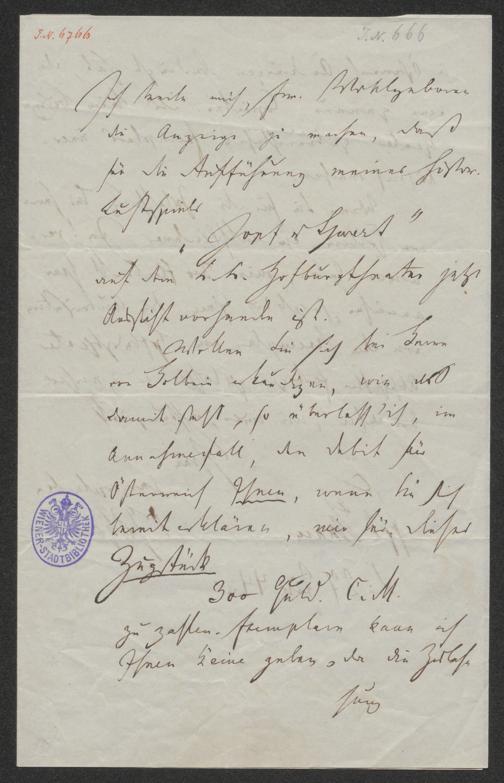 J.N. 6766
J.N. 666
Ich beeile mich, Ew. Wohlgeboren
die Anzeige zu machen, daß
für die Aufführung meines histor.
Lustspiels
"Zopf u Schwert"
auf dem k.k. Hofburgtheater jetzt
Aussicht vorhanden ist.
Wollen Sie sich bei Herrn
von Holbein erkundigen, wie es
damit steht, so überlass' ich, im
Annahmefall, den Debit für
Österreich Ihnen, wenn Sie sich
bereit erklären, mir für dieses
Zugstück
300 Guld. C.M.
zu zahlen. Exemplare kann ich
Ihnen keine geben, da die
sung
WIENER STADTBIBLIOTHEK